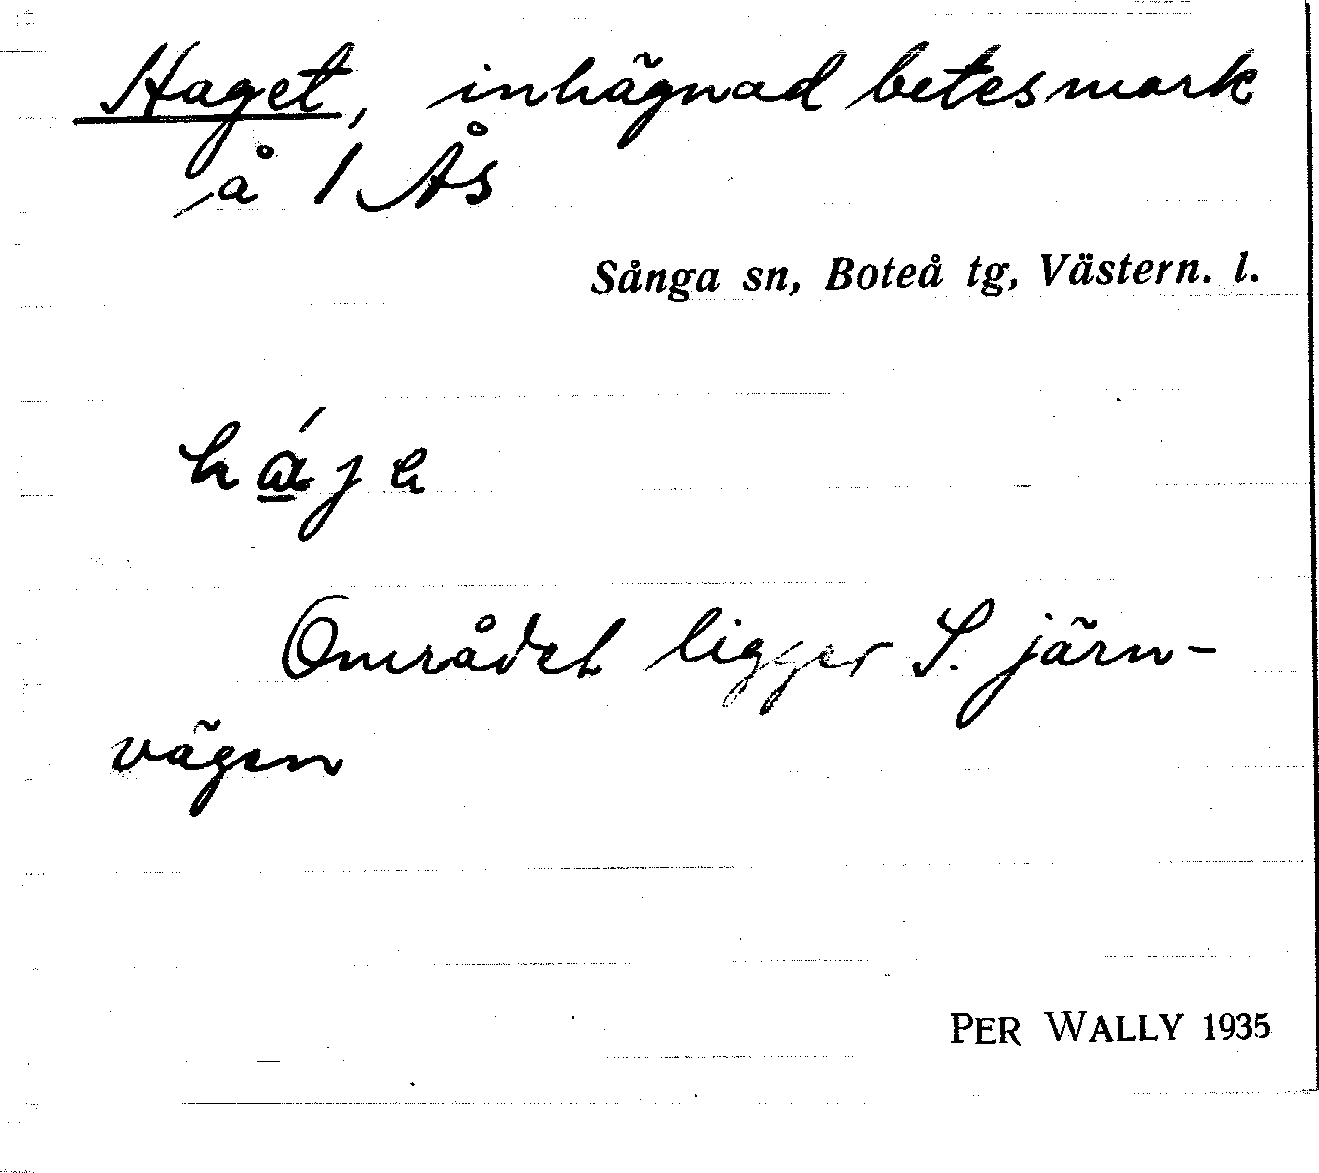 Haget, inhägnad betesmark
å 1 Ås
Sånga sn, Boteå tg, Västern. l.
Området ligger S. järn-
vägen
PER WALLY 1935